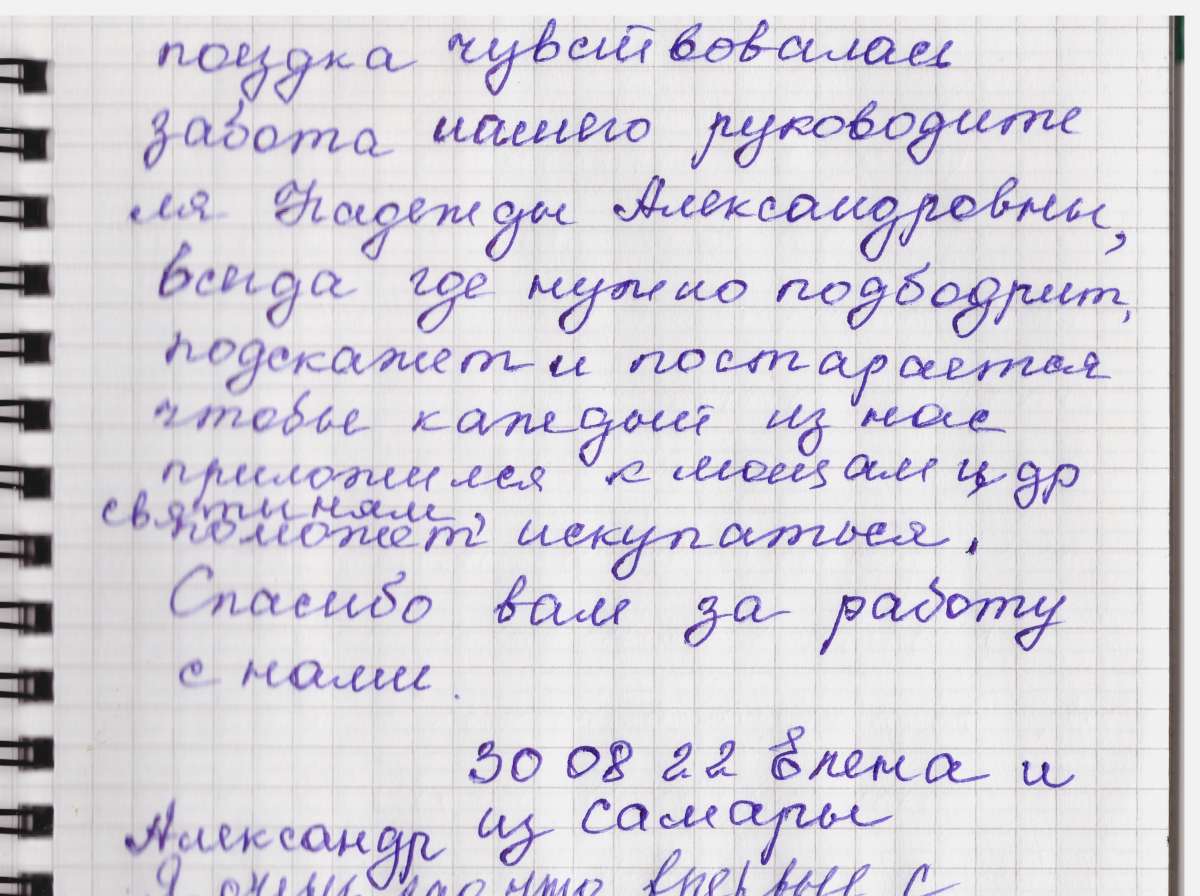 поездка чувствовалась
забота нашего руководите
ля Надежды Александровны,
всегда где нужно подбодрит,
подскажет и постарается
чтобы каждый из нас
приложился к мощам и др
святыням,
поможет искупаться.
Спасибо вам за работу
с нами.
30 08 22 Елена и
Александр из Самары
Я очень впервые с